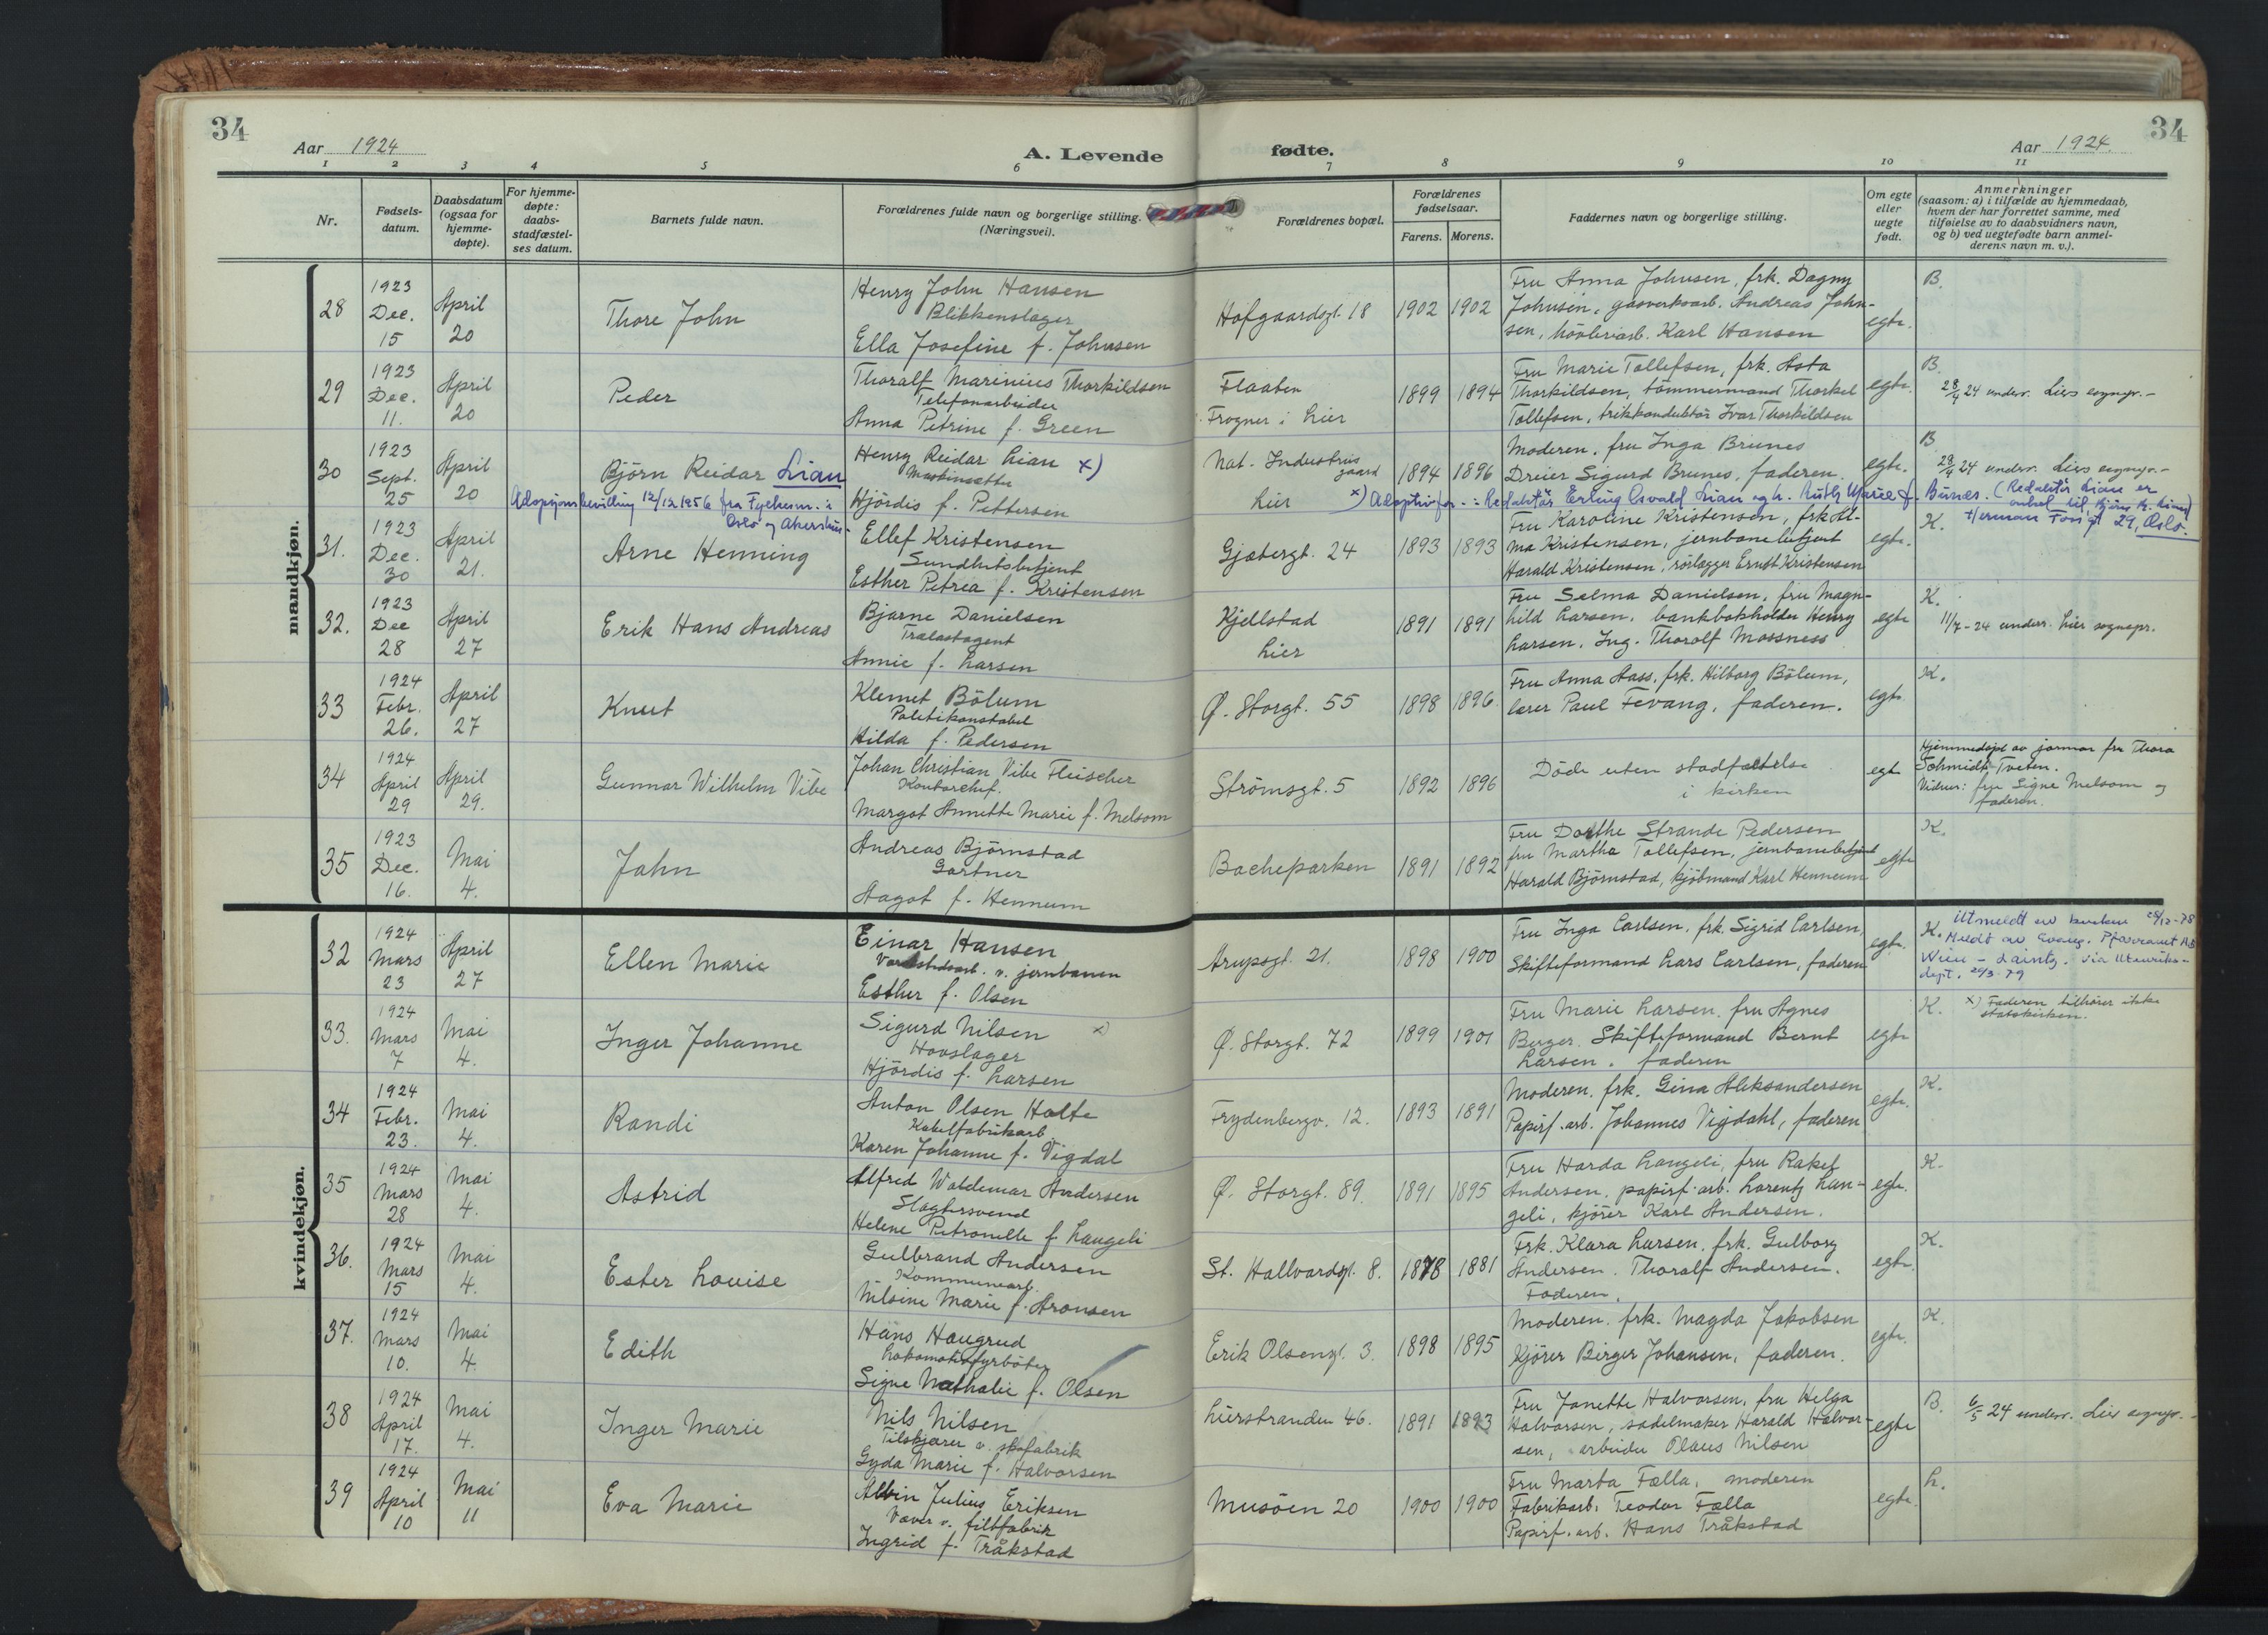 34
Aar 1924
A. Levende fødte.
Aar 1924.
34
1 2 3 4 5 6 7 8 9 10 11
Nr.
Fødsels-
datum.
Daabsdatum
(ogsaa for
hjemme-
døpte).
For hjemme-
døpte:
daabs-
stadfæstel-
ses datum.
Barnets fulde navn.
Forældrenes fulde navn og borgerlige stilling.
(Næringsvei).
Forældrenes bopæl.
Forældrenes
fødselsaar.
Farens. Morens.
Faddernes navn og borgerlige stilling.
Om egte
eller
uegte
født.
Anmerkninger
(saasom: a) i tilfælde av hjemmedaab,
hvem der har forrettet samme, med
tilføielse av to daabsvidners navn,
og b) ved uegtefødte barn anmel-
derens navn m. v.).
mandkjøn.
28
1923
Dec.
15
April
20
Thore John
Henry John Hansen
Blikkenslager
Ella Josefine f. Johnsen
Hofgaardsgt. 18
1902 1902
Fru Anna Johnsen, frk. Dagny
Johnsen, gasverksarb. Andreas John-
sen, høvleriarb. Karl Hansen
egte.
B.
29
1923
Dec.
11.
April
20
Peder
Thoralf Marinius Thorkildsen
Telefonarbeider
Anna Petrine f. Green
Flaaten
Frogner i Lier
1899 1894
Fru Marie Tollefsen, frk. Asta
Thorkildsen, tömmermand Thorkel
Tollefsen, trikkonduktör Ivar Thorkildsen
egte.
B.
28/4 24 underr. Liers sognepr. -
30
1923
Sept.
25
April
20
Björn Reidar Lian
Henry Reidar Lian x)
Maskinsetter
Hjördis f. Pettersen
Nat. Industris
gaard
Lier
1894 1896
Moderen, fru Inga Brunes
Dreier Sigurd Brunes, faderen
egte.
B
28/4 24 underr. Liers sognepr. -
Adopsjonsbevilling 12/12 1956 fra Fylkesm. i
Oslo og Akershus.
x) Adoptivfor.: Redaktör Erling Osvald Lian og h. Ruth Marie f. Bünes. (Redaktör Lian er
onkel til Björn R. Lian)
Herman Foss gt 29, Oslo.
31.
1923
Dec.
30
April
21.
Arne Henning
Ellef Kristensen
Sundhetsbetjent
Esther Petrea f. Kristensen
Gjetergt. 24
1893 1893
Fru Karoline Kristensen, frk Al-
ma Kristensen, jernbanebetjent
Harald Kristensen, rörlægger Ernst Kristensen
egte.
K.
32.
1923
Dec
28
April
27
Erik Hans Andreas
Bjarne Danielsen
Trælastagent
Annie f. Larsen
Kjellstad
Lier
1891 1891
Fru Selma Danielsen, fru Magn-
hild Larsen, bankbokholder Henry
Larsen, Ing. Thorolf Mossness
egte
K.
11/7 - 24 underr. Lier sognepr.
33
1924
Febr.
26.
April
27
Knut
Klemet Bölum
Politikonstabel
Hilda f. Pedersen
Ø. Storgt. 55
1898 1896
Fru Anna Aass, frk. Hilborg Bölum,
lærer Paul Fevang, faderen.
egte
K.
34
1924
April
29
April
29.
Gunnar Wilhelm Vibe
Johan Christian Vibe Fleischer
Kontorchef.
Margot Annette Marie f. Melsom
Strömsgt. 5
1892 1896
Döde uten stadfæstelse
i kirken
egte
Hjemmedöpt av jormor fru Thora
Schmidt Tveten.
Vidner: fru Signe Melsom og
faderen.
35
1923
Dec.
16.
Mai
4.
John
Andreas Björnstad
Gartner
Aagot f. Hennum
Bacheparken
1891 1892
Fru Dorthe Strande Pedersen
fru Martha Tollefsen, jernbanebetjent
Harald Björnstad, kjöbmand Karl Hennum
egte
K.
kvindekjøn.
32
1924
Mars
23
April
27
Ellen Marie
Einar Hansen
Værkstedsarb. v. jernbanen
Esther f. Olsen
Arupsgt. 21.
1898 1900
Fru Inga Carlsen, frk. Sigrid Carlsen,
Skifteformand Lars Carlsen, faderen
egte.
K. Utmeldt av kirken 28/12-78
Meldt av Evang. Pfarramt A.B
Wien - Lainz, via Utenriks-
dept. 20/3-79
33.
1924
Mars
7
Mai
4.
Inger Johanne
Sigurd Nilsen x)
Hovslager
Hjördis f. Larsen
Ø. Storgt. 72
1899 1901
Fru Marie Larsen, fru Agnes
Berger. Skifteformand Bernt
Larsen, faderen
egte
K. x) Faderen tilhører ikke
statskirken.
34
1924
Febr.
23.
Mai
4.
Randi
Anton Olsen Holte
Kabelfabrikarb.
Karen Johanne f. Vigdal
Frydenbergv. 12.
1893 1891
Moderen, frk. Gina Aleksandersen
Papirf. arb. Johannes Vigdahl, faderen
egte.
K.
35
1924
Mars
28
Mai
4.
Astrid
Alfred Waldemar Andersen
Slagtersvend
Helene Petronelle f. Langeli
Ø. Storgt. 89.
1891 1895
Fru Harda Langeli, fru Rakel
Andersen, papirf. arb. Lorentz Lan-
geli, kjörer Karl Andersen.
egte.
K.
36.
1924
Mars
15
Mai
4.
Ester Louise
Gulbrand Andersen
Kommunearb.
Nilsine Marie f. Aronsen
St. Hallvardsgt. 8.
1878 1881
Frk. Klara Larsen, frk. Gulborg
Andersen. Thoralf Andersen.
Faderen.
egte.
K.
37.
1924
Mars
10.
Mai
4.
Edith
Hans Haugrud
Lokomotivfyrböter
Signe Nathalie f. Olsen
Erik Olsensgt. 3.
1898 1895
Moderen, frk. Magda Jakobsen
Kjörer Birger Johansen, faderen.
egte.
K.
38
1924
April
17.
Mai
4.
Inger Marie
Nils Nilsen
Tilskjærer v. skofabrik
Gyda Marie f. Halvorsen
Lierstranden 46.
1891 1893
Fru Janette Halvorsen, fru Helga
Halvorsen, sadelmaker Harald Halvor-
sen, arbeider Olaus Nilsen
egte
B. 6/5 24 underr. Lier sognepr. -
39
1924
April
10
Mai
11
Eva Marie
Alvin Julius Eriksen
Væver v. filtfabrik
Ingrid f. Tråkstad
Musöen 20
1900 1900
Fru Marta Fælla, moderen
Fabrikarb. Teodor Fælla
Papirf. arb. Hans Tråkstad
egte.
L.